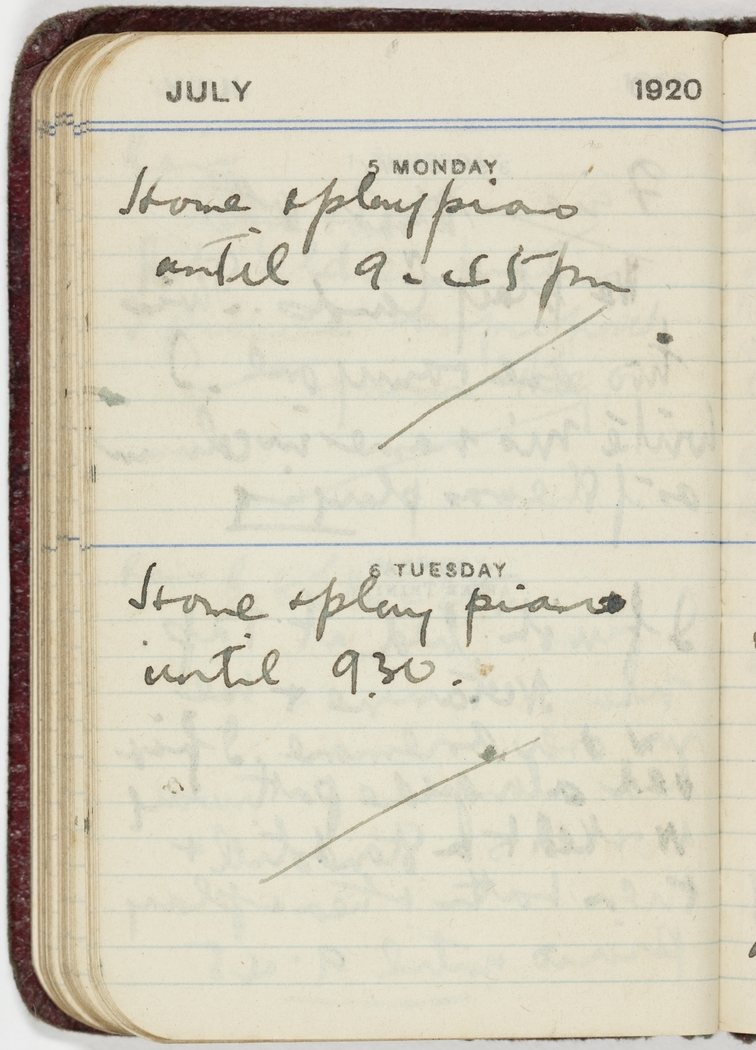 JULY 1920
5 MONDAY
Home & play piano
until 9.45 pm
6 TUESDAY
Home & play piano
until 9.30.